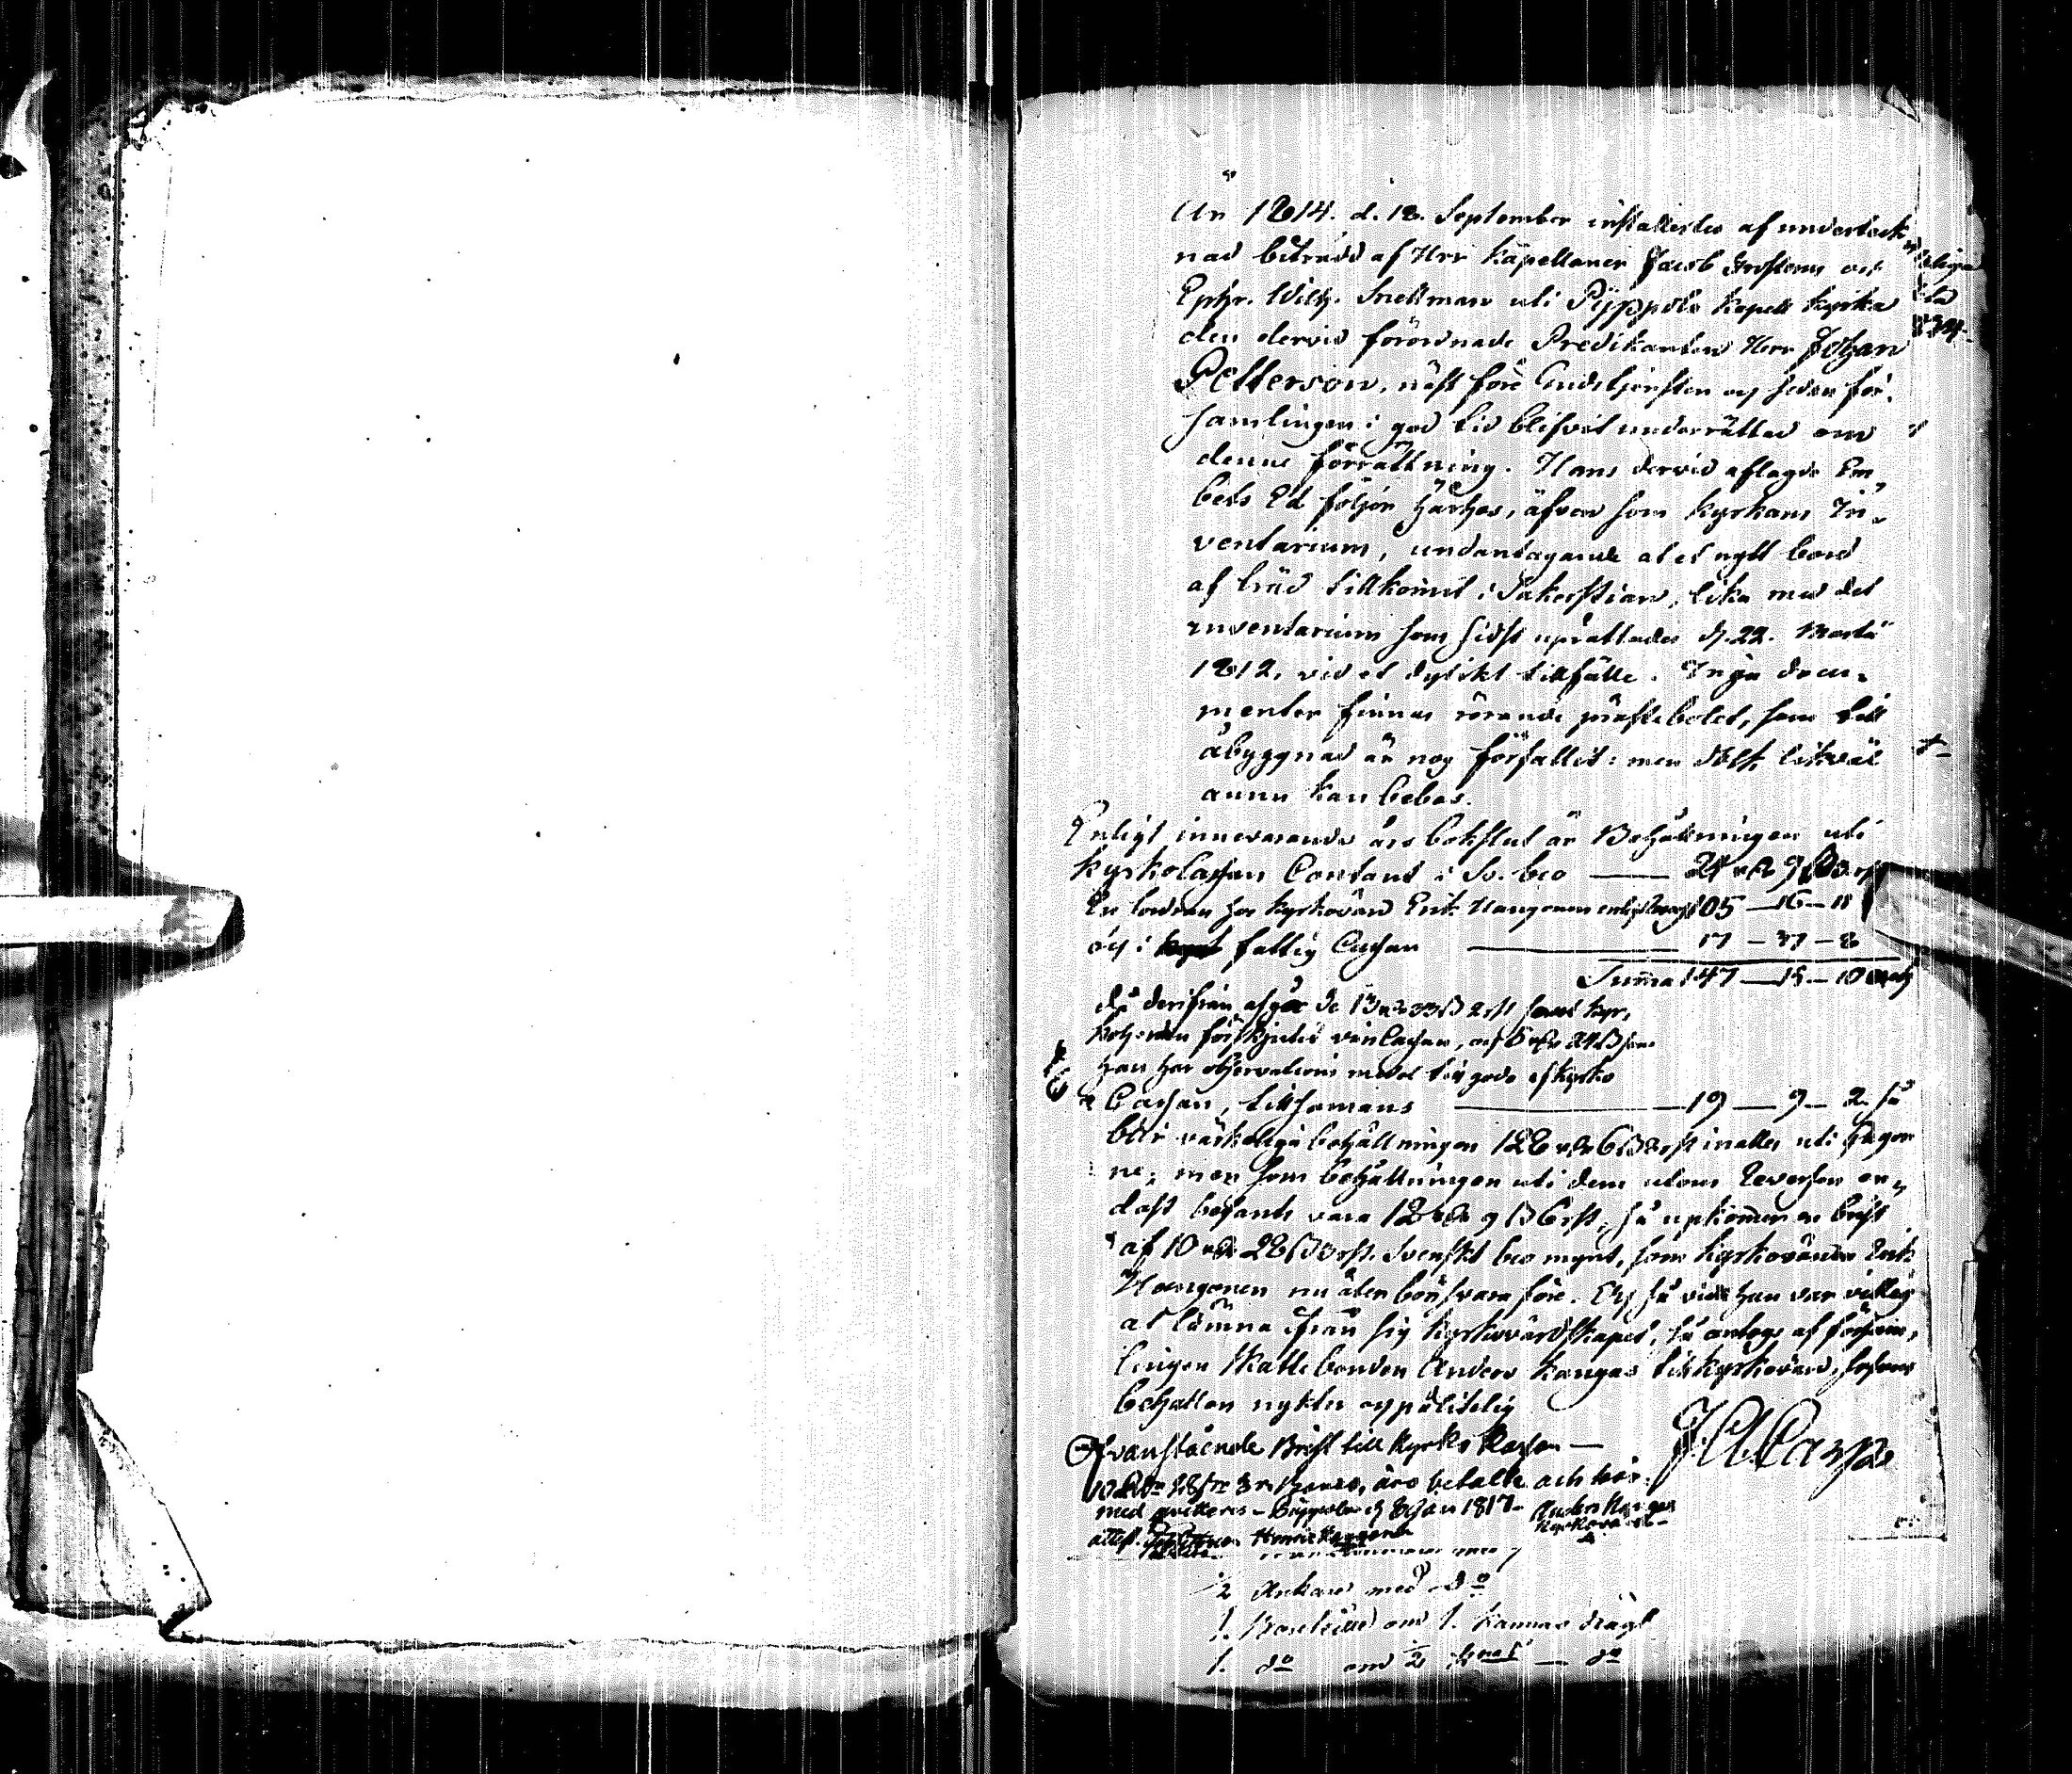 År 1814. d. 18. September installerades af underteck
nad biträdd af Herr Kapellaner Jacob och
Ephr. Wilh. Snellman uti Pyppola Kapell kyrka
den dervid förordnade Predikanten Herr Johan
Petterson, näst före Gudstjensten och sedan för,
samlingen i god tid blifvit underrättad om
denne förrättning. Hans dervid aflagde Em
bets Ed följer härhos, äfven som Kyrkans In,
ventarium, undantagande at et nytt bord
af träd tillkommit i Sakerstian, lika med det
inventarium som sidst uprättades d. 22. Martii
1812, vid et dylikt tillfälle. Inga docu,
menter finnas rörande prästebolet, som till
åbyggnad är nog förfallit: men dock likväl
ännu kan bebos.
Enligt innevarande års bokslut är Behållningen uti
Kyrkocassan Contant i Sv. bco — 24 rdr 9
En lånan hos kyrkovärd Erik Hangonen enligt 105 — 16 — 11
och i fattig Cassan — 17 — 37 — 8
Summa 147 — 15 — 10
då derifrån afgår de 13 rdr 33 ß 2 rst som kyr,
koherden förskjutit vin Cassan, och 5 rdr 24 ß som
han har observations medel till godo af kyrko
Cassan, tillsamans — 19 — 9 — 2 så
blir värkeliga behållningen 128 rdr 6 ß 8 rst inalles uti
ne; men som behållningen uti dem utom Reversen en,
dast befants vara 12 rdr 9 ß 6 rst, så upkommer en brist
af 10 rdr 28 ß 3 rst. Svenskt bco mynt, som kyrkovärden Erik
Hangonen nu åter bör svara före. Och så vida han var villig
at lämna ifrån sig kyrkovärdskapet, så antogs af försam,
lingen Skattebonden Anders Kangas till kyrkovärd, såsom
behållen nykter och pålitelig
JHCarp
Ofvanstående Brist till Kyrko Kassan —
10 Rdr 28 ß 3 r. Banco, äro betalte och här
med quitteras — Pyppola d. 8 Jan 1817. Anders Kangas
Kyrkovärd
attest. Henric Kangonen
½ Ankare med do
1. om 1. Kannas drägt
1. do om ½ do